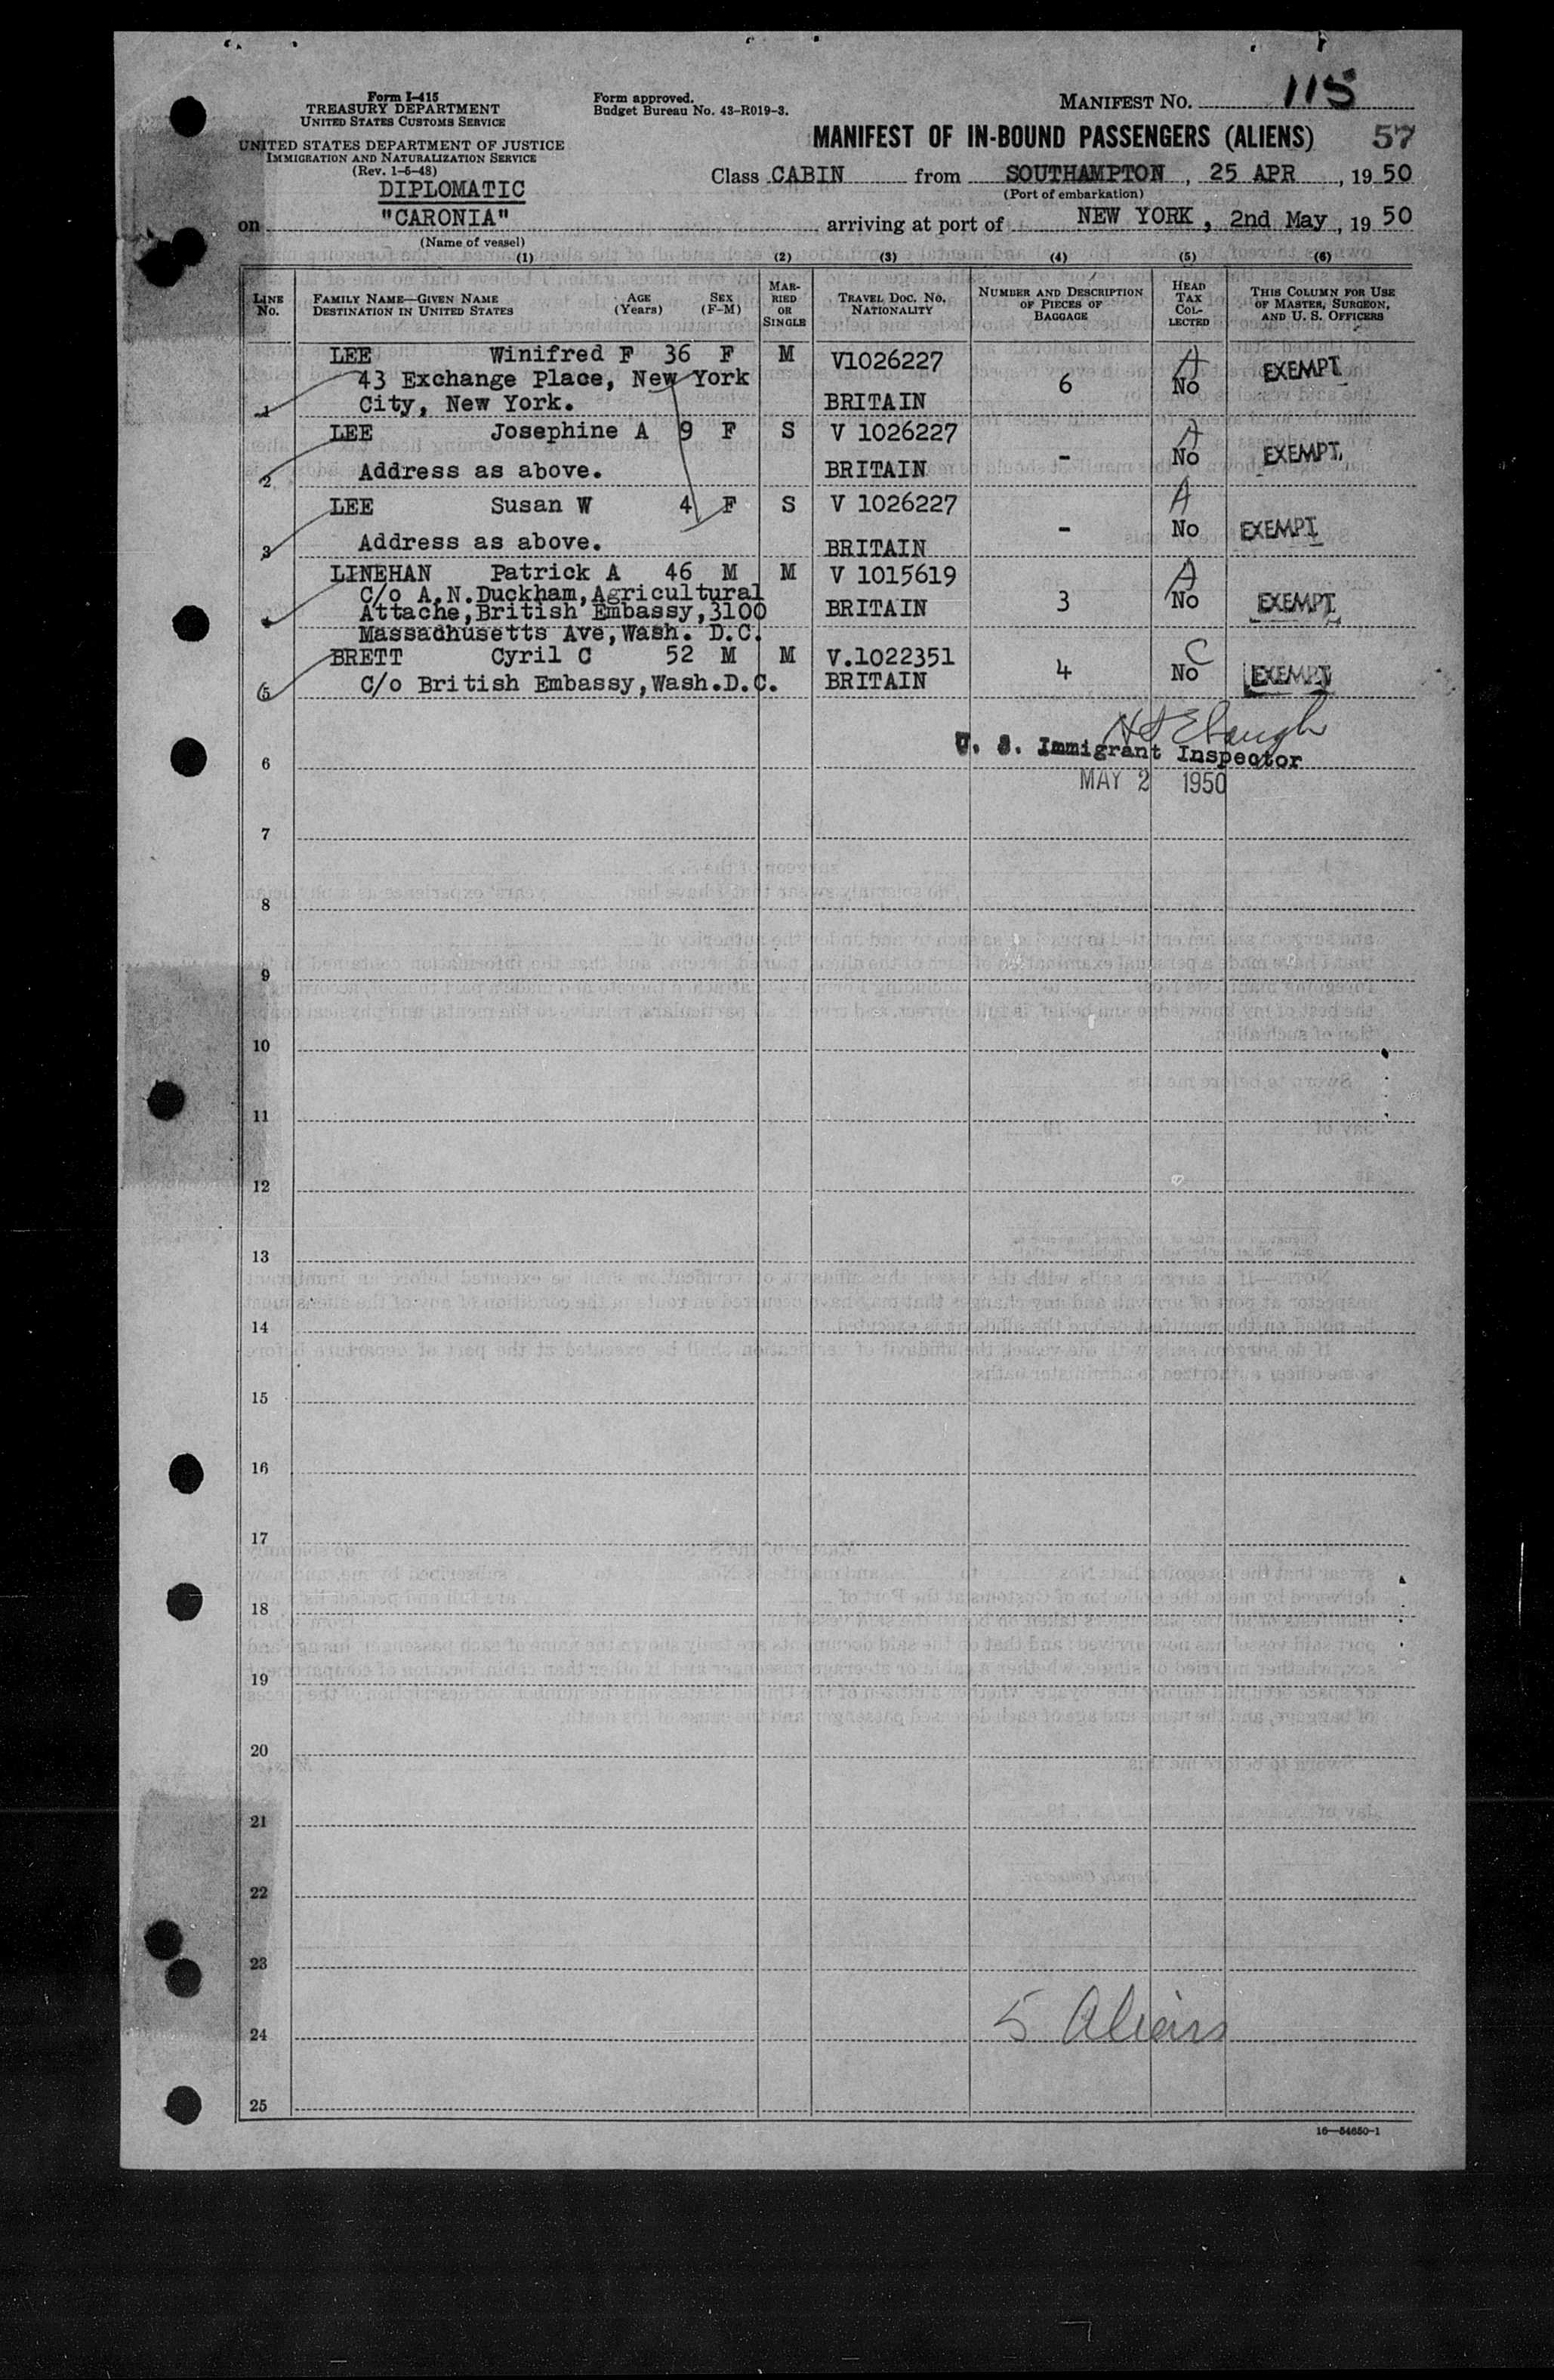 Form I-415
TREASURY DEPARTMENT
UNITED STATES CUSTOMS SERVICE
UNITED STATES DEPARTMENT OF JUSTICE
IMMIGRATION AND NATURALIZATION SERVICE
(Rev. 1-5-48)
Form approved.
Budget Bureau No. 43-R019-3.
MANIFEST NO. 115
MANIFEST OF IN-BOUND PASSENGERS (ALIENS) 57
DIPLOMATIC
Class CABIN from SOUTHAMPTON, 25 APR, 19 50
(Port of embarkation)
on "CARONIA" arriving at port of NEW YORK, 2nd May, 19 50
(Name of vessel)
(1) (2) (3) (4) (5) (6)
LINE No. FAMILY NAME—GIVEN NAME DESTINATION IN UNITED STATES AGE (Years) SEX (F-M) MARRIED OR SINGLE TRAVEL DOC. NO. NATIONALITY NUMBER AND DESCRIPTION OF PIECES OF BAGGAGE HEAD TAX COLLECTED THIS COLUMN FOR USE OF MASTER, SURGEON, AND U. S. OFFICERS
LEE Winifred F 36 F M V1026227 A EXEMPT
43 Exchange Place, New York 6 No
1 City, New York. BRITAIN
LEE Josephine A 9 F S V 1026227 A
2 Address as above. BRITAIN - No EXEMPT
LEE Susan W 4 F S V 1026227 A
3 Address as above. BRITAIN - No EXEMPT
LINEHAN Patrick A 46 M M V 1015619 A
C/o A.N.Duckham,Agricultural
4 Attache,British Embassy,3100 BRITAIN 3 No EXEMPT
Massadhusetts Ave,Wash. D.C.
BRETT Cyril C 52 M M V.1022351 C
5 C/o British Embassy,Wash.D.C. BRITAIN 4 No EXEMPT
U. S. Immigrant Inspector
6
MAY 2 1950
7
8
9
10
11
12
13
14
15
16
17
18
19
20
21
22
23
24 5 Aliens
25
16—54650-1